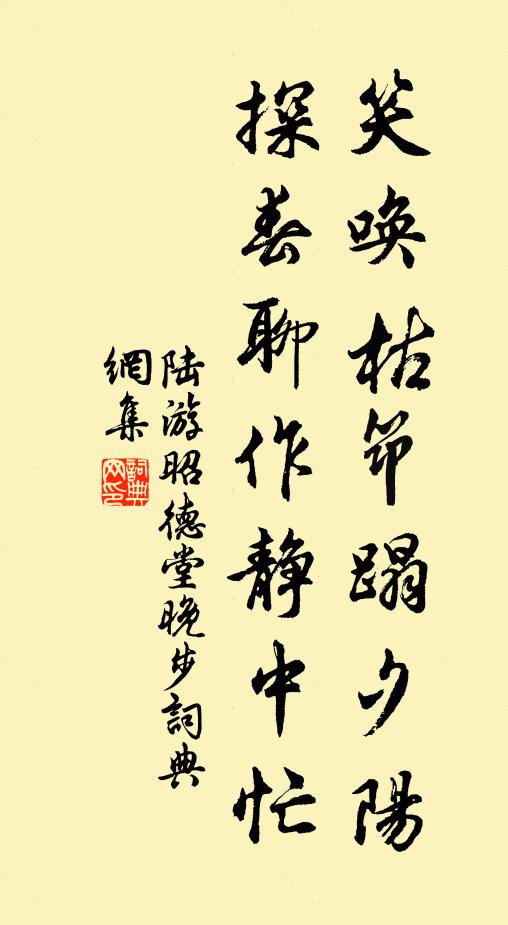 笑唤枯筇蹋夕陽
探春聊作静中忙
陆游昭德堂晚步詞典
網集
詞典
网印